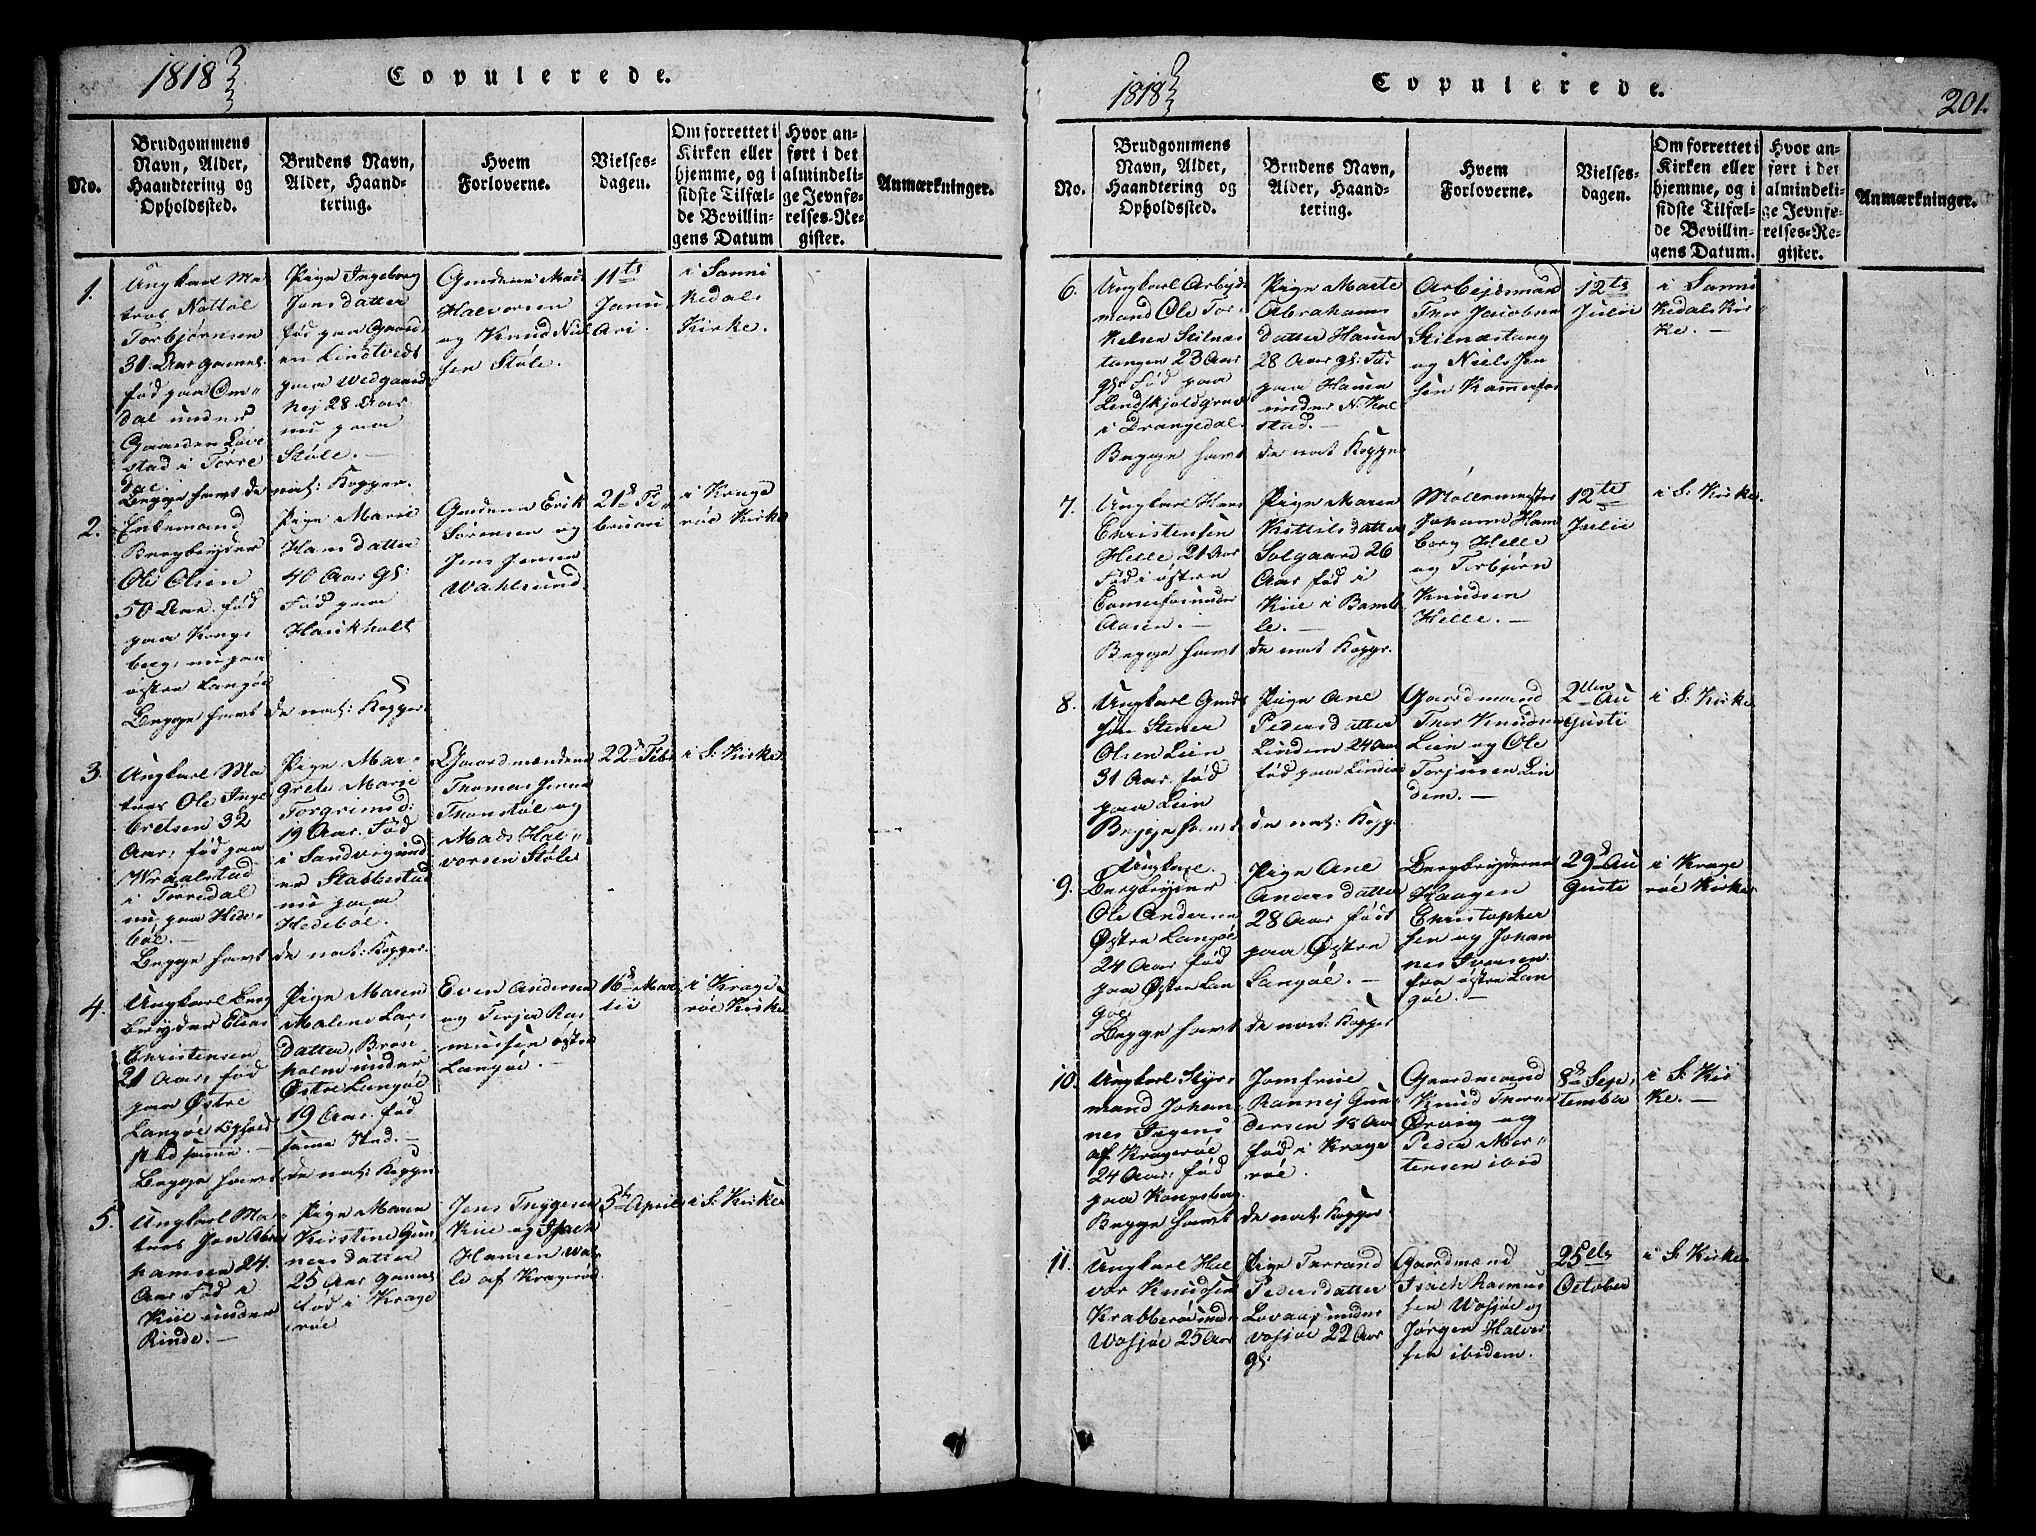 1818
Copulerede.
No.
Brudgommens
Navn, Alder,
Haandtering og
Opholdssted.
Brudens Navn,
Alder, Haand-
tering.
Hvem
Forloverne.
Vielses-
dagen.
Om forrettet i
Kirken eller
hjemme, og i
sidste Tilfæl-
de Bevillin-
gens Datum
Hvor an-
ført i det
almindeli-
ge Jevnfø-
relses-Re-
gister.
Anmærkninger.
1.
Ungkarl Ma-
tros
Torbjørnsen
31 Aar gammel
fød paa Om-
dal under
Gaarden Løv-
stad i Tørre
dal.
Pige Ingeborg
Jonsdatter
fød paa Gaard-
en Lindtvedt
paa
28 Aar
nu paa
Støle. —
Begge havt de nat: Kopper.
Gmdene Mads
Halvorsen
og Knud Niel
sen Støle.
11te
Janu
ari.
i Sanni
kedals
Kirke.
2.
Enkemand
Bergbryder
Ole Olsen
50 Aar. fød
paa Kongs
berg, nu paa
østre Langøe
Pige Marie
Hansdatter
40 Aar gl:
Fød paa
Haukholt
Begge havt de nat: Kopper.
Gmdene Erik
Sørensen og
Jens Jensen
Wahlsund.
21de Fe-
bruari
i Krage
røe Kirke
3.
Ungkarl Ma-
tros Ole Inge
bretsen 32
Aar, fød paa
Wraalstad
i Tørredal
nu paa Hede-
bøe. —
Pige Mar-
grete Marie
Torgrimsd:
19 Aar. Fød
i Sandvig und
er Stabbestad
nu paa
Hedebøe. —
Begge havt de nat: Kopper.
Gaardmændene
Thomas Jensen
Tronstøl og
Mads Hal-
vorsen Støle
22de Febr
i S: Kirke
4.
Ungkarl Berg
bryder Elias
Christensen
21 Aar, fød
paa Østre
Langøe
sted samme. —
Pige Maren
Malene Lars
datter, Bron
holm under
Østre Langøe
19 Aar. fød
samme Sted. —
Begge havt de nat: Kopper
Even Andersen
og Terje Ras
mussen østre
Langøe. —
16de Mar
tii
i Krage
røe Kirke
5.
Ungkarl Ma-
tros Jon Abra
hamsen 24
Aar Fød i
Kiil under
Rinde. —
Pige Maren
Kirstine Gun
nersdatter
25 Aar gammel
fød i Krage
røe
Jens Trygesen
Kiil og Isach
Hansen Wal
le af Kragerøe
5te April
i S: Kirke
1818
Copulerede.
201.
No.
Brudgommens
Navn, Alder,
Haandtering og
Opholdssted.
Brudens Navn,
Alder, Haand-
tering.
Hvem
Forloverne.
Vielses-
dagen.
Om forrettet i
Kirken eller
hjemme, og i
sidste Tilfæl-
de Bevillin-
gens Datum.
Hvor an-
ført i det
almindeli-
ge Jevnfø-
relses-Re-
gister.
Anmærkninger.
6.
Ungkarl Arbejds
mand Ole Tor
kelsen Stilnæs
tangen 23 Aar
gl: Fød paa
i Drangedal.
Pige Marte
Abrahams
datter Hauen
28 Aar gl: Fød
paa Hauen
under N. Kal
stad. —
Begge havt de nat Kopper
Arbejdsmand
Thor Jacobsen
Stilnæstang
og Niels Jen
sen Kammerfos
12te
Julii
i Sanni
kedals Kir
ke. —
7.
Ungkarl Hans
Christensen
Helle, 21 Aar
Fød i østre
Camerfos under
Aasen. —
Pige Maren
Kittilsdatter
Solgaard 26
Aar fød i
Kiil i Bamb
le. —
Begge havt de nat Kopper.
Møllemester
Johann Ham
borg Helle
og Torbjørn
Knudsen
Helle. —
12te
Julii
i S: Kirke.
8.
Ungkarl Gmds
søn Stener
Olsen Lien
31 Aar, fød
paa Lien
Pige Ane
Pedersdatter
Lindem 24 Aar
fød paa Lindem
Begge havt de nat: Kopp.
Gaardmænd
Thor Knudsen
Lien og Ole
Torjusen Lin
dem. —
2den Au
gusti
i S: Kirke
9.
Ungkarl.
Bergbryder
Ole Andersen
Østre Langøe
24 Aar. fød
paa Østre Lan
gøe
Pige Ane
Andersdatter
28 Aar født
paa Østre
Langøe. —
Begge havt de nat: Kopper
Bergbryderne
Haagen
Christopher
sen og Johan
nes Iversen
fra østre Lan
gøe. —
29de Au
gusti
i Krage
røe Kirke
10.
Ungkarl Styr-
mand Johan
nes
af Kragerøe
24 Aar, fød
paa Kongsberg.
Jomfrue
Rannej Gun
dersen 18 Aar
fød i Krage
røe.
Begge havt de nat: Kopper.
Gaardmænd
Knud Thorsen
Ørvig og
Peder Mor-
tensen ibid
8de Sep
tember
i S: Kir
ke. —
11.
Ungkarl Hal
vor Knudsen
Krabberød under
Wosjøe 25 Aar
Pige Tarrand
Pedersdatter
Lovaas under
Vosjøe 22 Aar
gl:
Gaardmænd
Isach Rasmus
sen Wosjøe og
Jørgen Halvor
sen ibidem.
25de
October
i S: Kirke